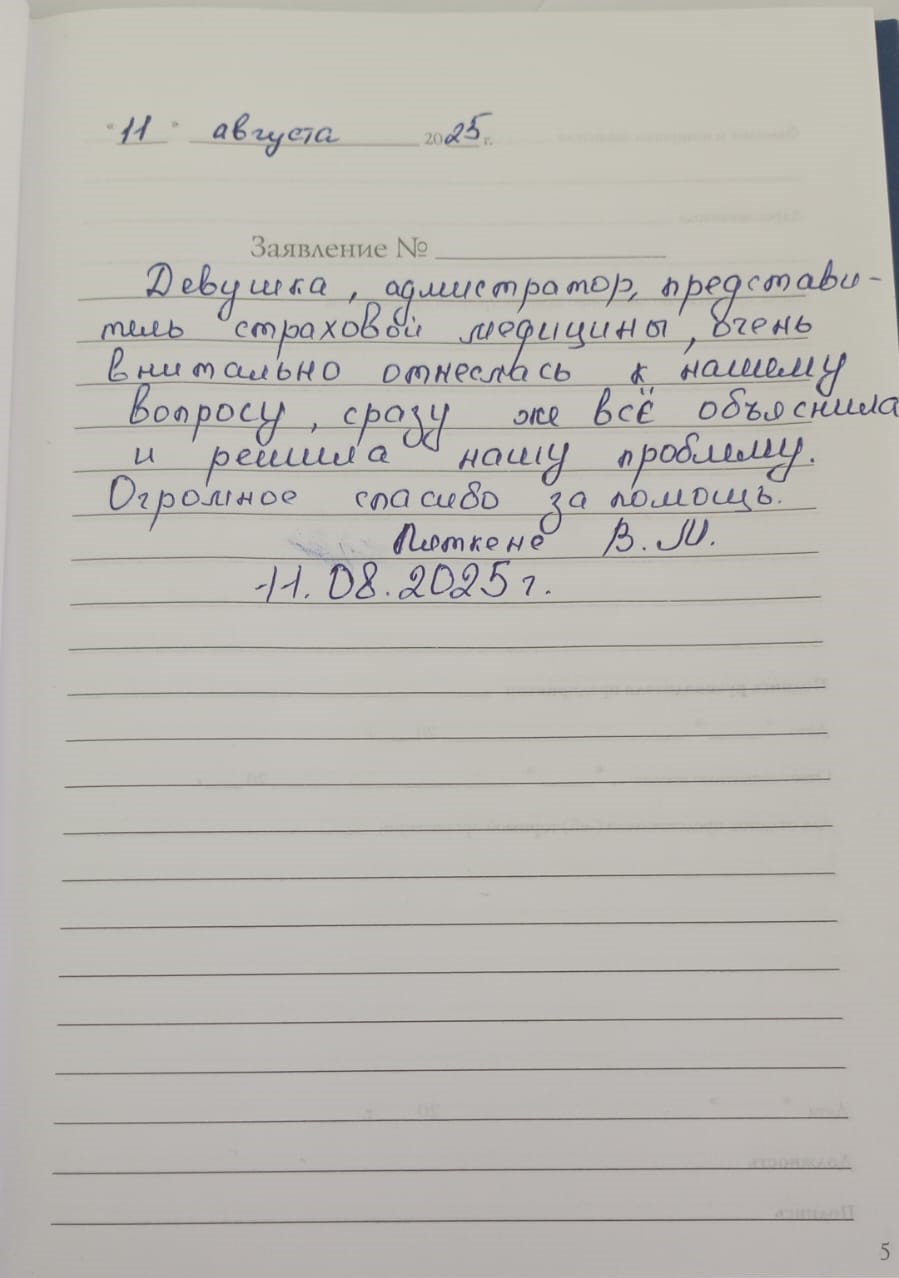 "11" августа 2025 г.
Заявление №
Девушка, адмистратор, представи-
тель страховой медицины, очень
внитально отнеслась к нашему
вопросу, сразу же всё объяснила
и решила нашу проблему.
Огромное спасибо за помощь.
В. М.
11.08.2025 г.
5